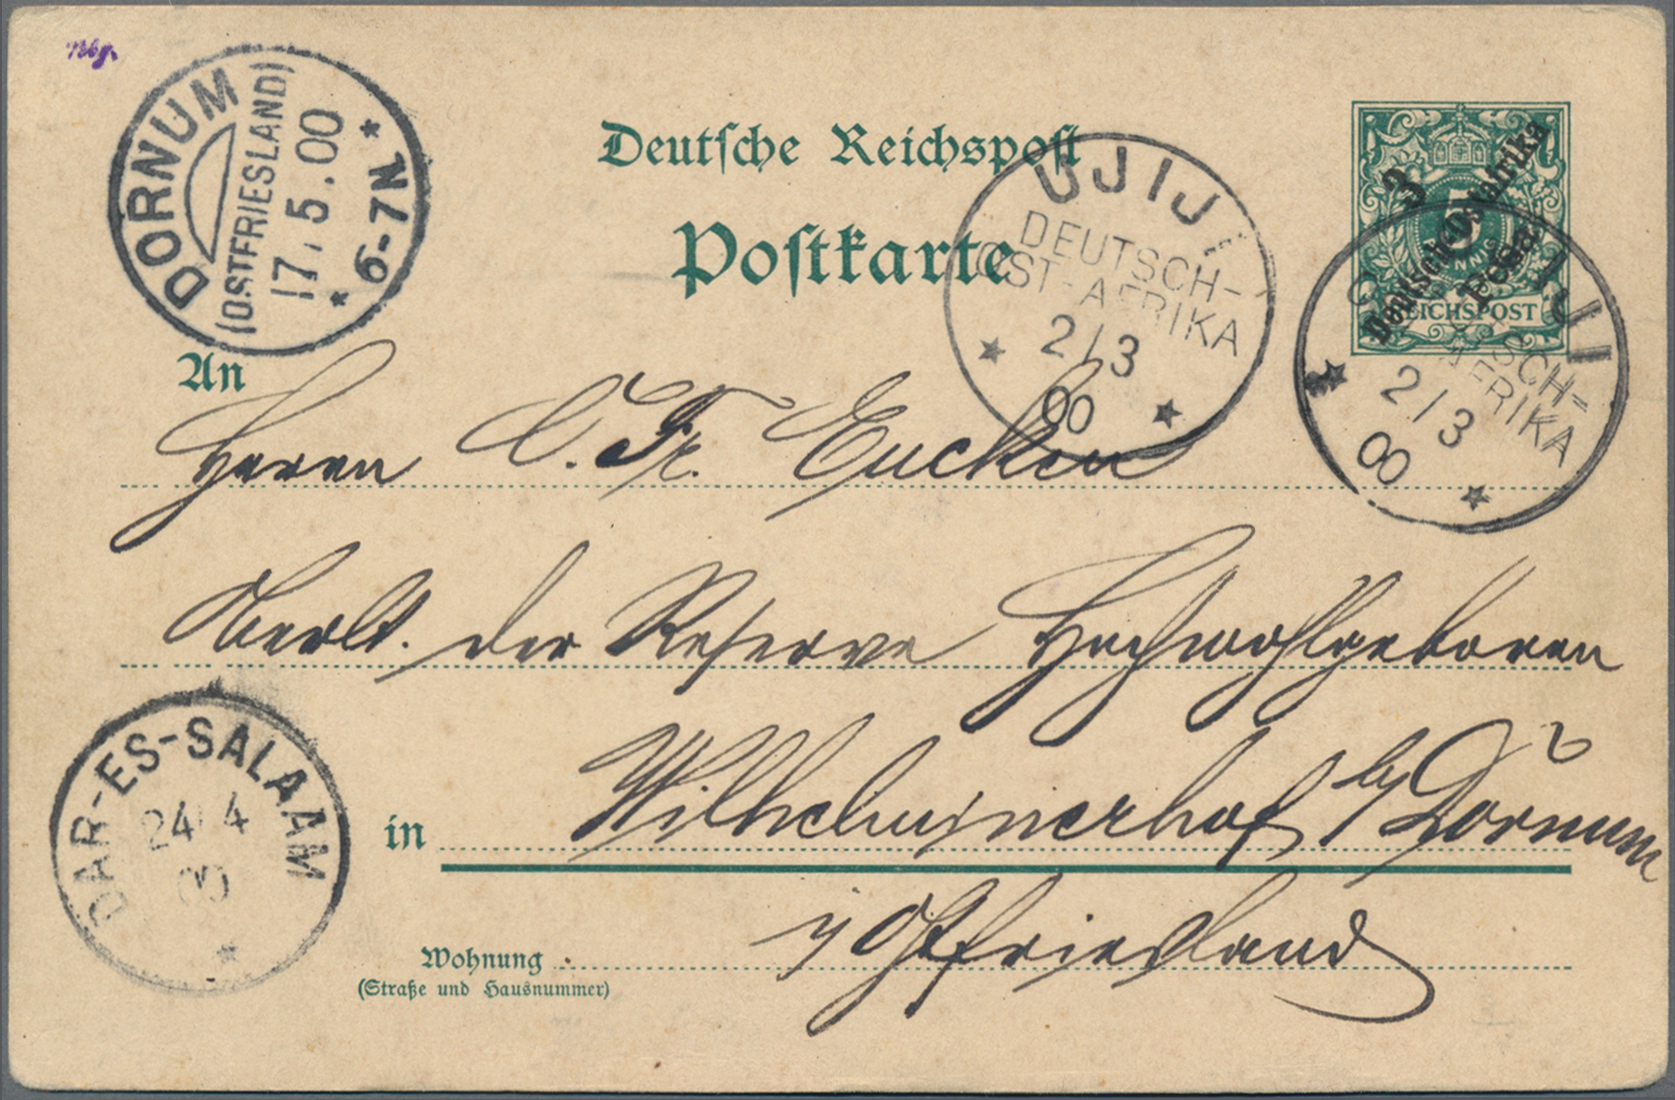 DORNUM
(OSTFRIESLAND)
17.5.00
* 6-7N *
Deutsche Reichspost
Postkarte
3
Deutsch-Ostafrika
Pesa
5
REICHSPOST
UJIJI
DEUTSCH-
OST-AFRIKA
2/3
00
UJIJI
DEUTSCH-
OST-AFRIKA
2/3
00
An
Herrn C. Fr. Eucken
Oberlt. der Reserve Hochwohlgeboren
in Wilhelminerhof b/ Dornum
i/ Ostfriesland
Wohnung
(Straße und Hausnummer)
DAR-ES-SALAAM
24/4
00